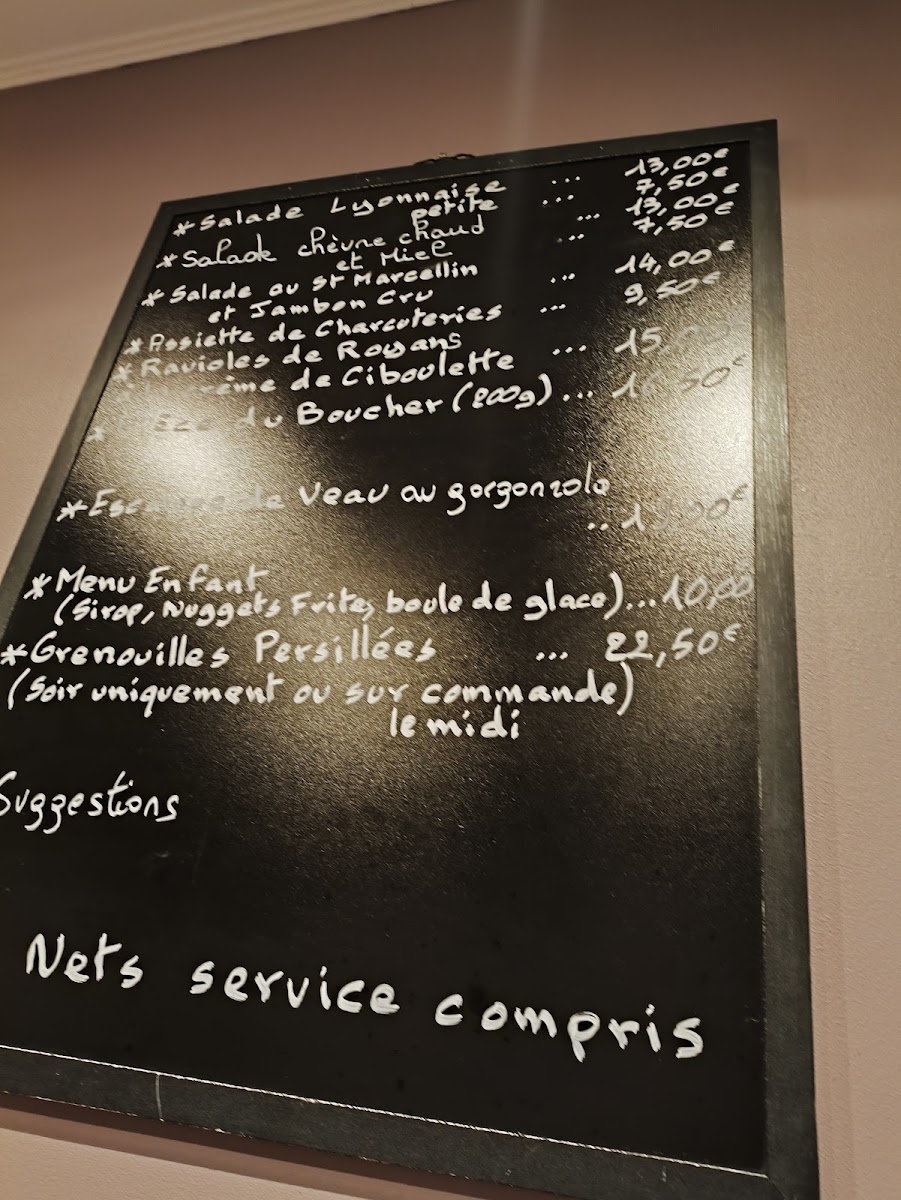 *Salade Lyonnaise ... 13,00€
petite ... 7,50€
*Salade chèvre chaud ... 13,00€
et Miel ... 7,50€
*Salade au St Marcellin ... 14,00€
et Jambon Cru
*Assiette de Charcuteries ... 9,50€
*Ravioles de Royans
de Ciboulette ...
* du Boucher (200g) ...
* de Veau au gorgonzola
..
*Menu Enfant
(Sirop, Nuggets Frites, boule de glace)...10,00
*Grenouilles Persillées ... 22,50€
(Soir uniquement ou sur commande)
le midi
Suggestions
Nets service compris